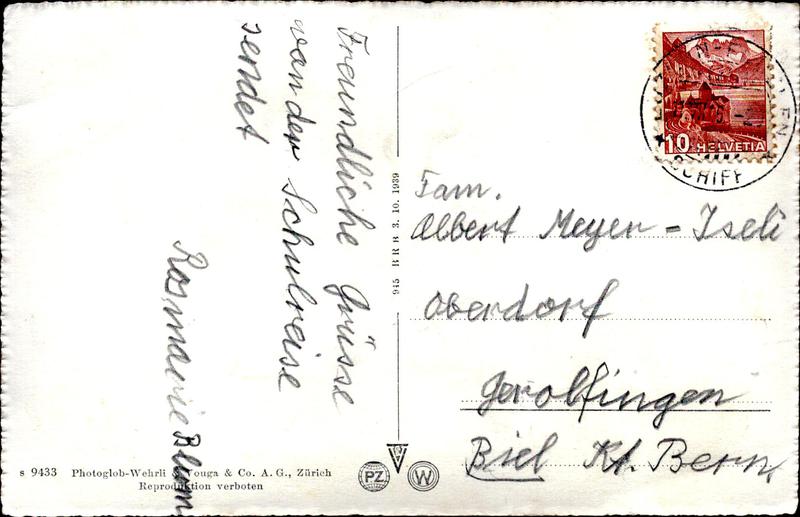 Freundliche Grüsse
von der Schulreise
sendet
Rosmarie Blum
Fam.
Albert Meyer = Iseli
Oberdorf
Gerolfingen
Biel Kt. Bern.
10 HELVETIA
SCHIFF
945 BRB 3. 10. 1939
s 9433 Photoglob-Wehrli & Vouga & Co. A. G., Zürich
Reproduktion verboten
PZ
W